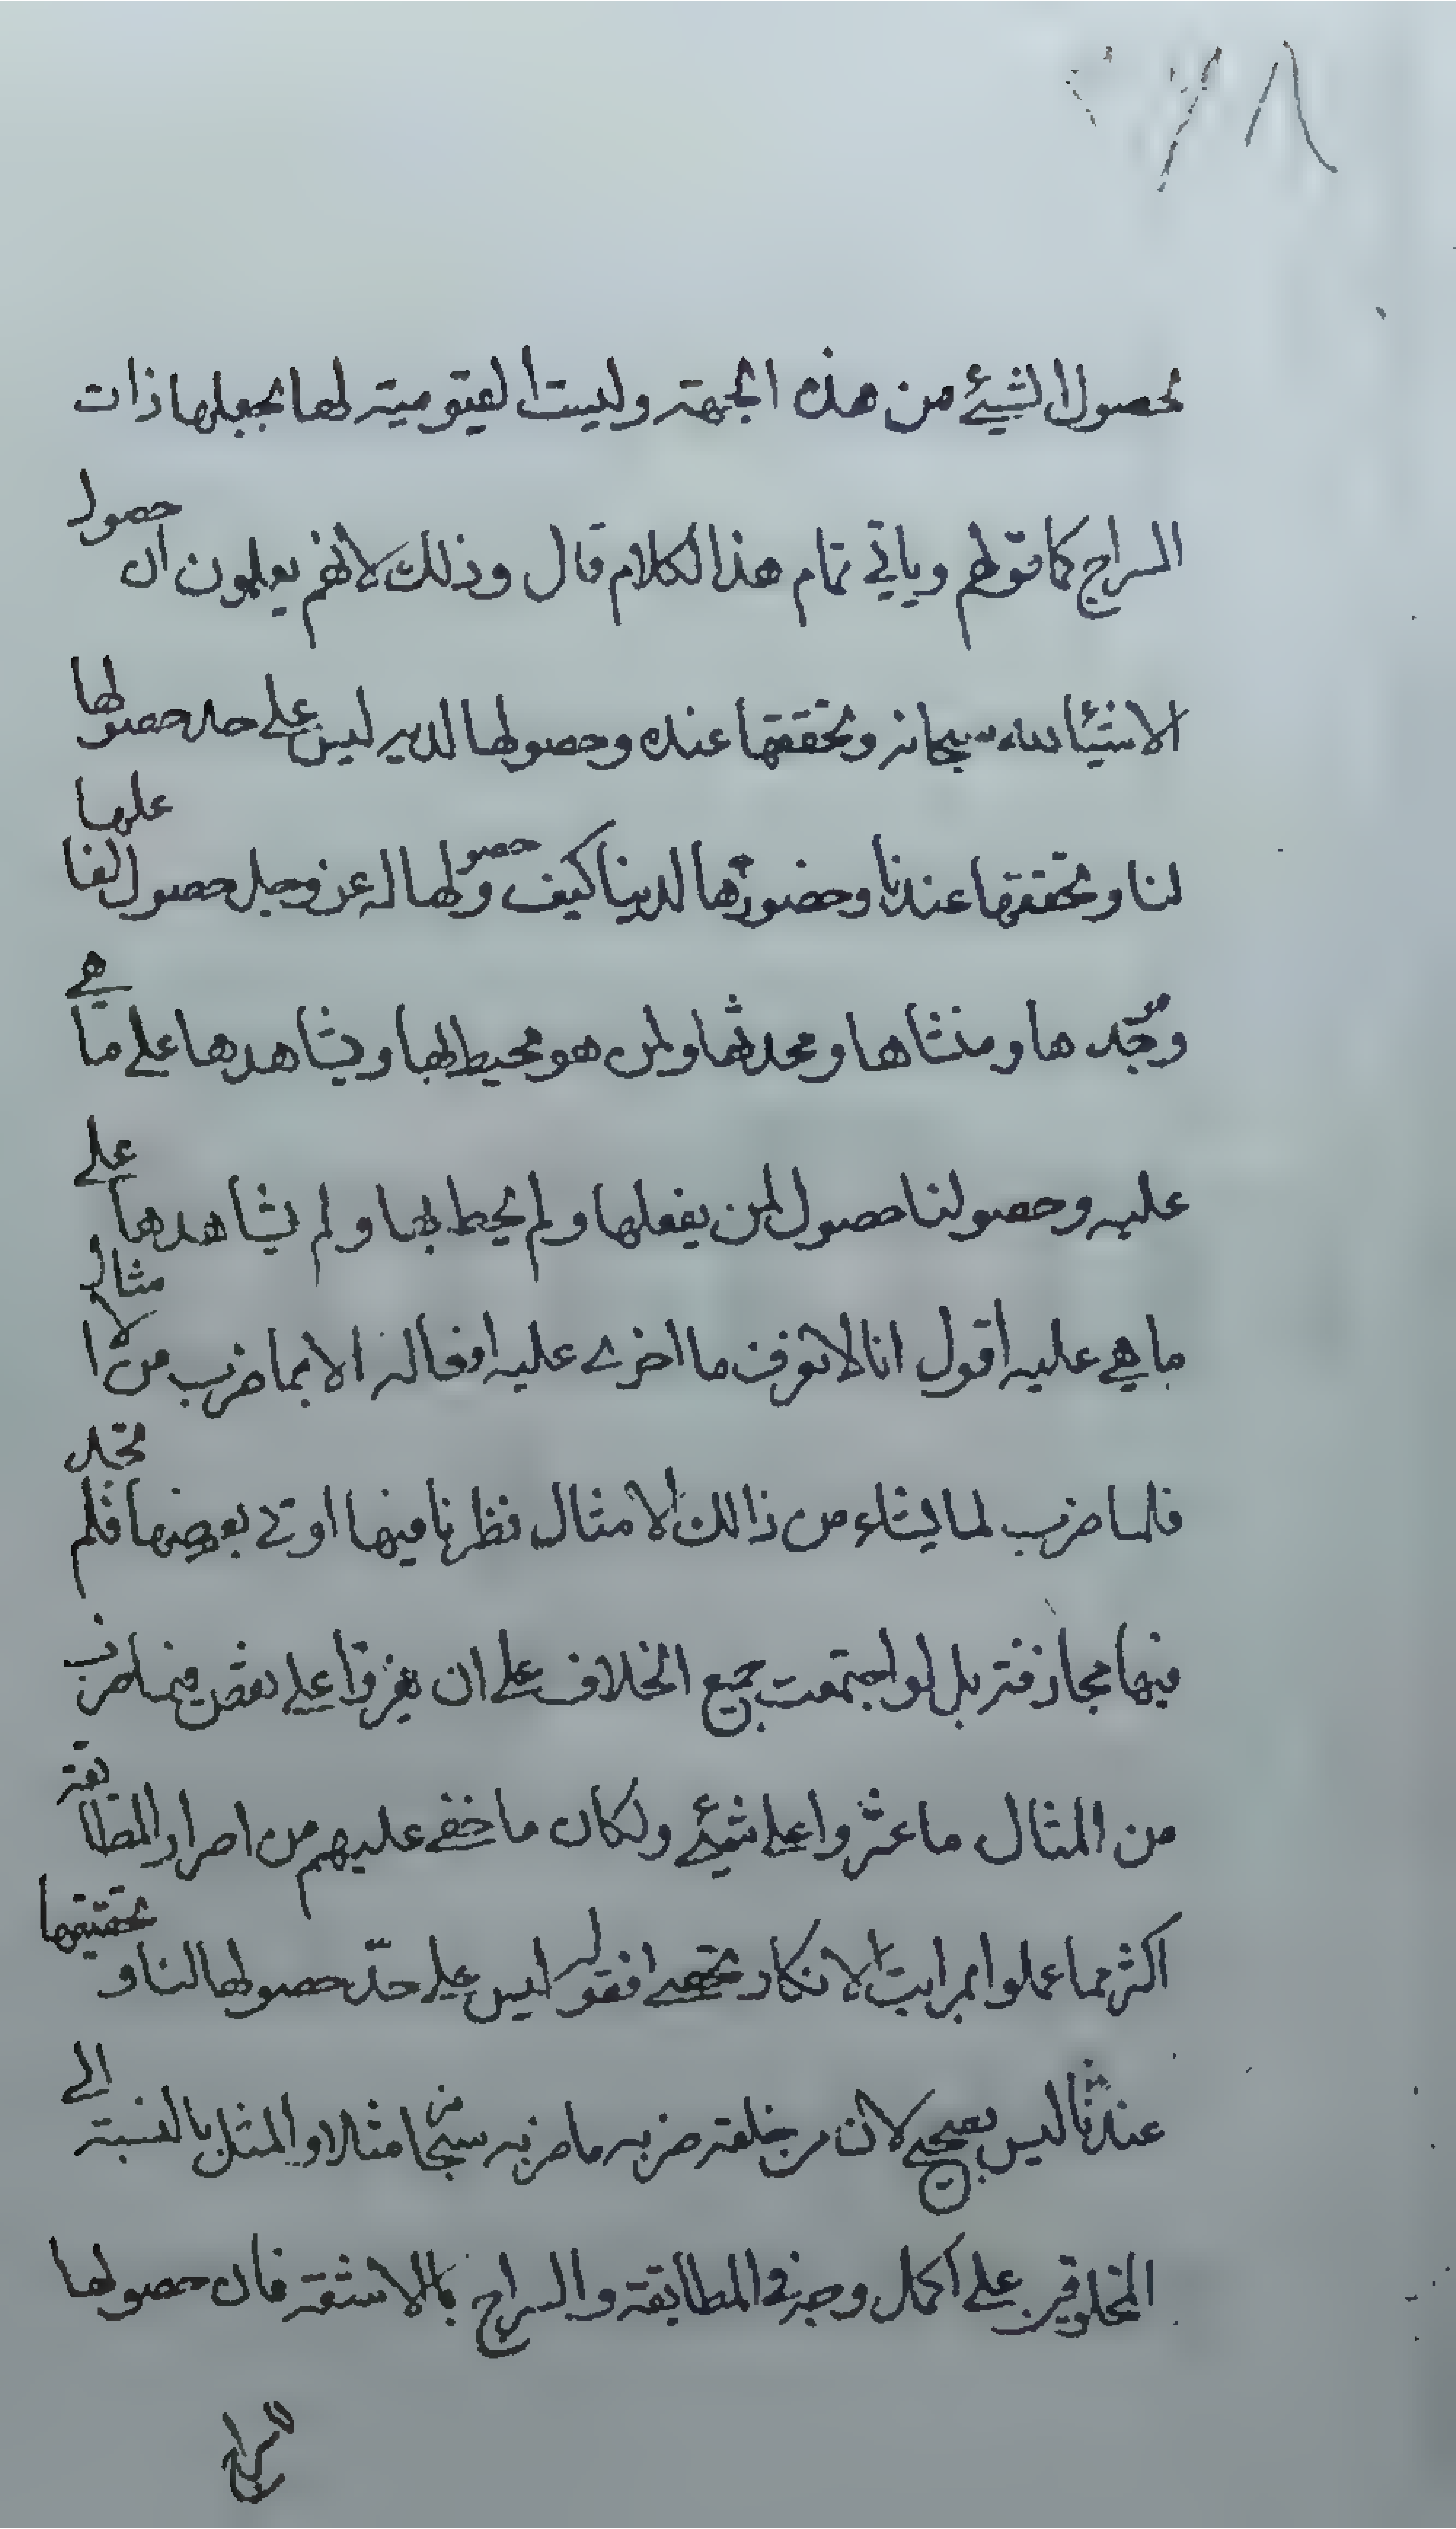 لحصول الشيئ من هذه الجهة وليست القيومية لها بجعلها ذات
السراج كما قولهم وياتي تمام هذا الكلام قال وذلك لانهم يعلمون ان حصول
الاشيئا لله سبحانه وتحققها عنده وحصولها لديه ليس علي حد حصولها
لنا وتحققها عندنا وحضورها لدينا كيف وحصولها له عز وجل حصول لفاعلها
وموجدها ومنشاها ومحدثها ولمن هو محيط بها ويشاهدها علي ما هي
عليه وحصولنا حصول لمن يفعلها ولم يحط بها ولم يشاهدها علي
ما هي عليه اقول انا لا نعرف ما اخرے عليه افعاله الا بما ضرب من الامثال
فلما ضرب لما يشاء من ذالك الامثال نظرنا فيها اوتے بعضها فلم نجد
فيها مجازفة بل لو اجتمعت جميع الخلاف علي ان يفرقوا علي بعض فيما ضرب
من المثال ما عثروا علي شيئ ولكان ما خفے عليهم من اصرار المطابقة
اكثر مما عملوا بمراتب لا تكاد تحصے فقوله ليس علي حدّ حصولها لنا وتحقيقها
عندنا ليس بصحيح لان من خلقه ضربه ما ضربه سبحانه مثلا والمثل بالنسبة الي
المخلوقين علي اكمل وجه في المطابقة والسراج بالاشعة فان حصولها